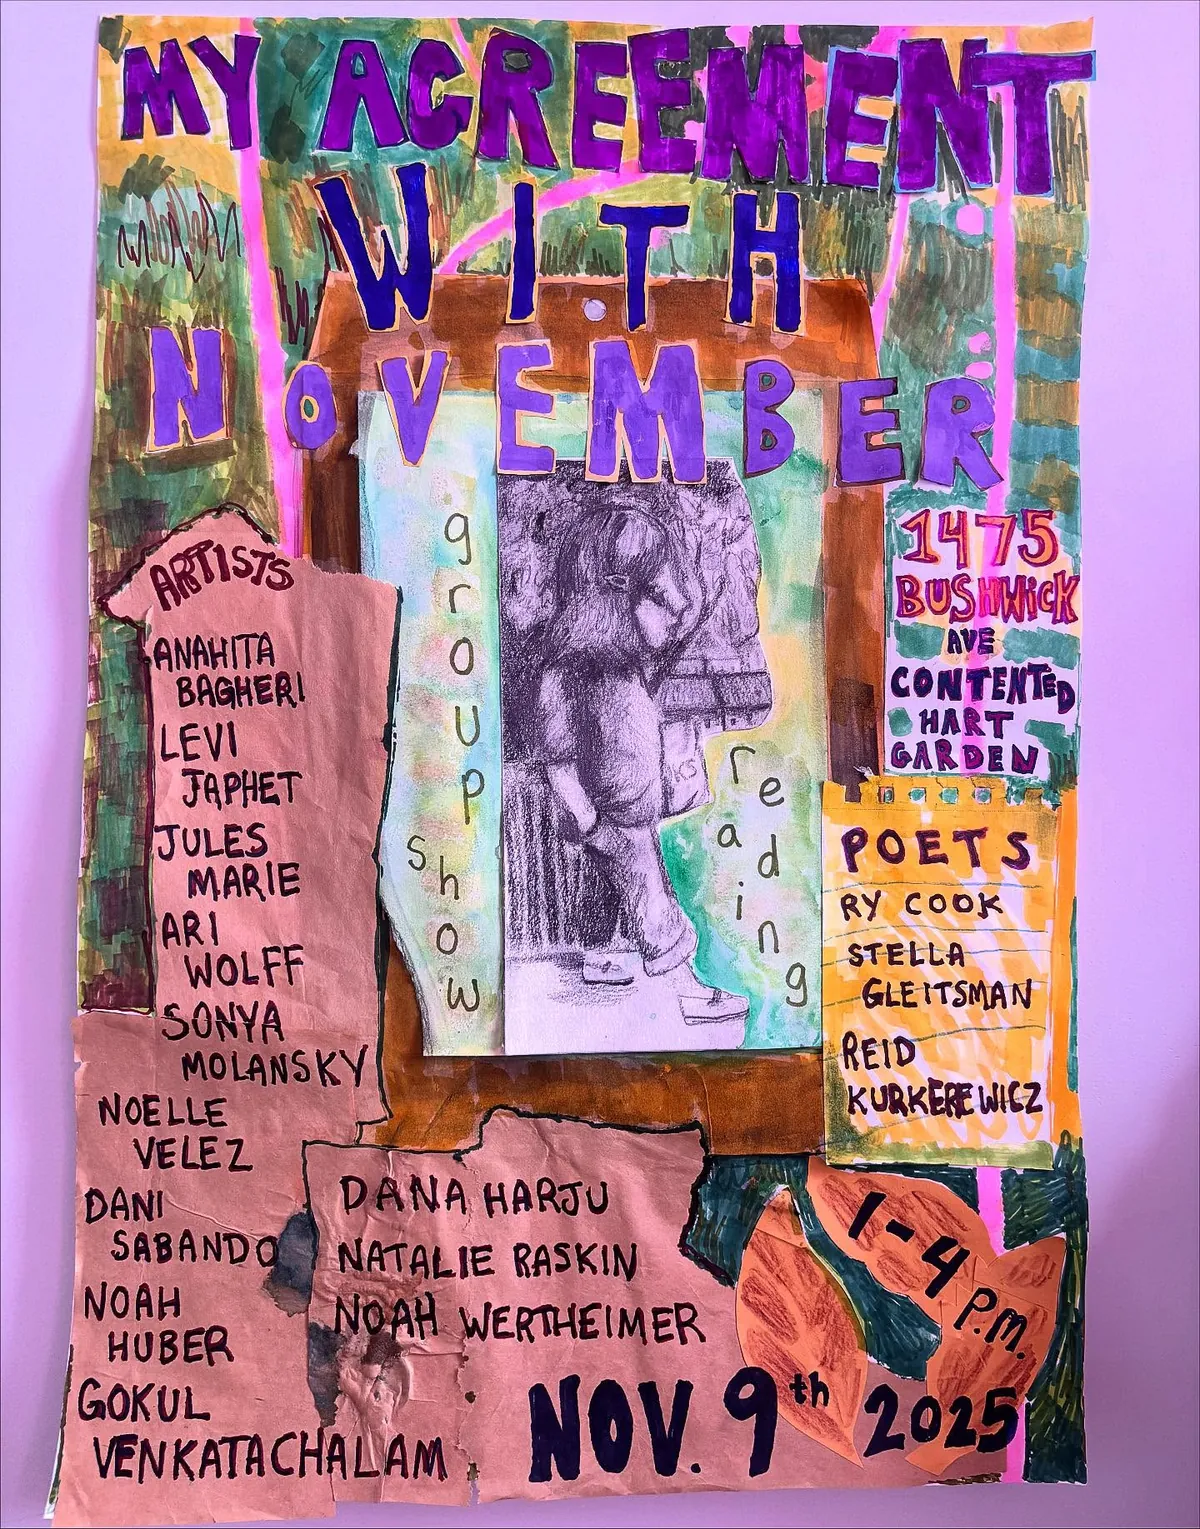 MY AGREEMENT
WITH
NOVEMBER
group
show
reading
1475
BUSHWICK
AVE
CONTENTED
HART
GARDEN
ARTISTS
ANAHITA
BAGHERI
LEVI
JAPHET
JULES
MARIE
ARI
WOLFF
SONYA
MOLANSKY
NOELLE
VELEZ
DANI
SABANDO
NOAH
HUBER
GOKUL
VENKATACHALAM
DANA HARJU
NATALIE RASKIN
NOAH WERTHEIMER
POETS
RY COOK
STELLA
GLEITSMAN
REID
KURKEREWICZ
1-4
P.M.
NOV. 9th 2025